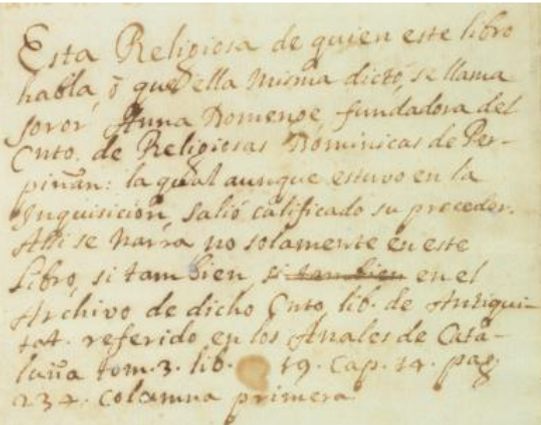 Esta Religiosa de quien este libro
habla, ò que ella misma dictó, se llama
soror Anna Domenge, fundadora del
Cnto. de Religiosas Dominicas de Per-
piñan: la qual aunque estuvo en la
Inquisicion, salió calificado su proceder.
Assi se narra no solamente en este
Libro, si tambien si tambien en el
Archivo de dicho Cnto lib. de Antiqui-
tat. referido en los Anales de Cata-
luña tom. 3. lib. 19. cap. 14. pag
234. columna primera